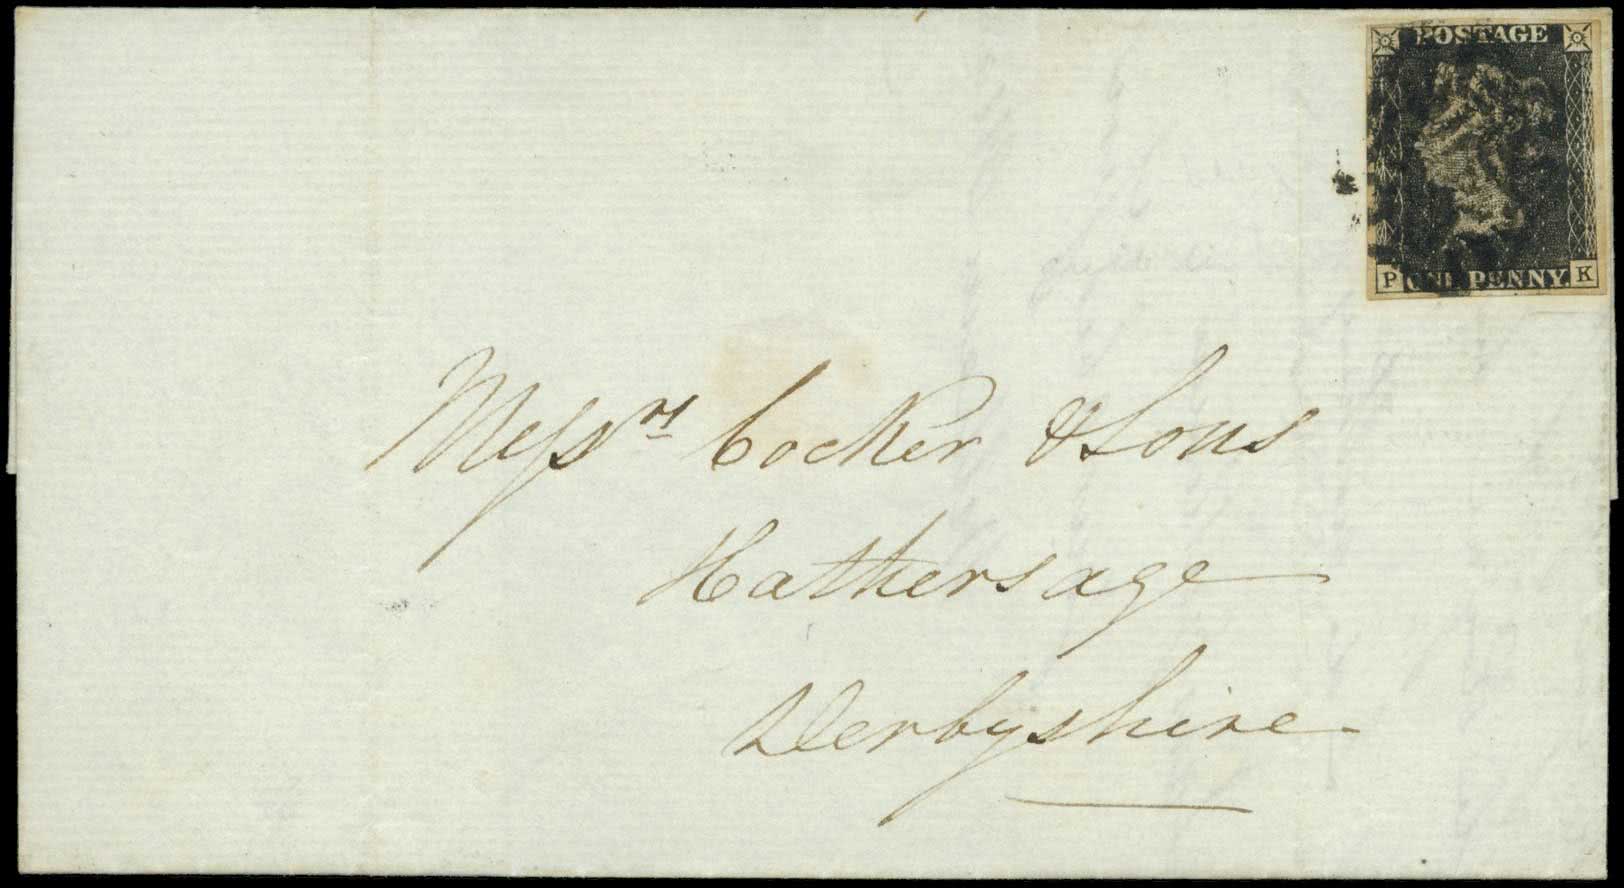 POSTAGE
P ONE PENNY K
Messrs Cocker & Sons
Hathersage
Derbyshire